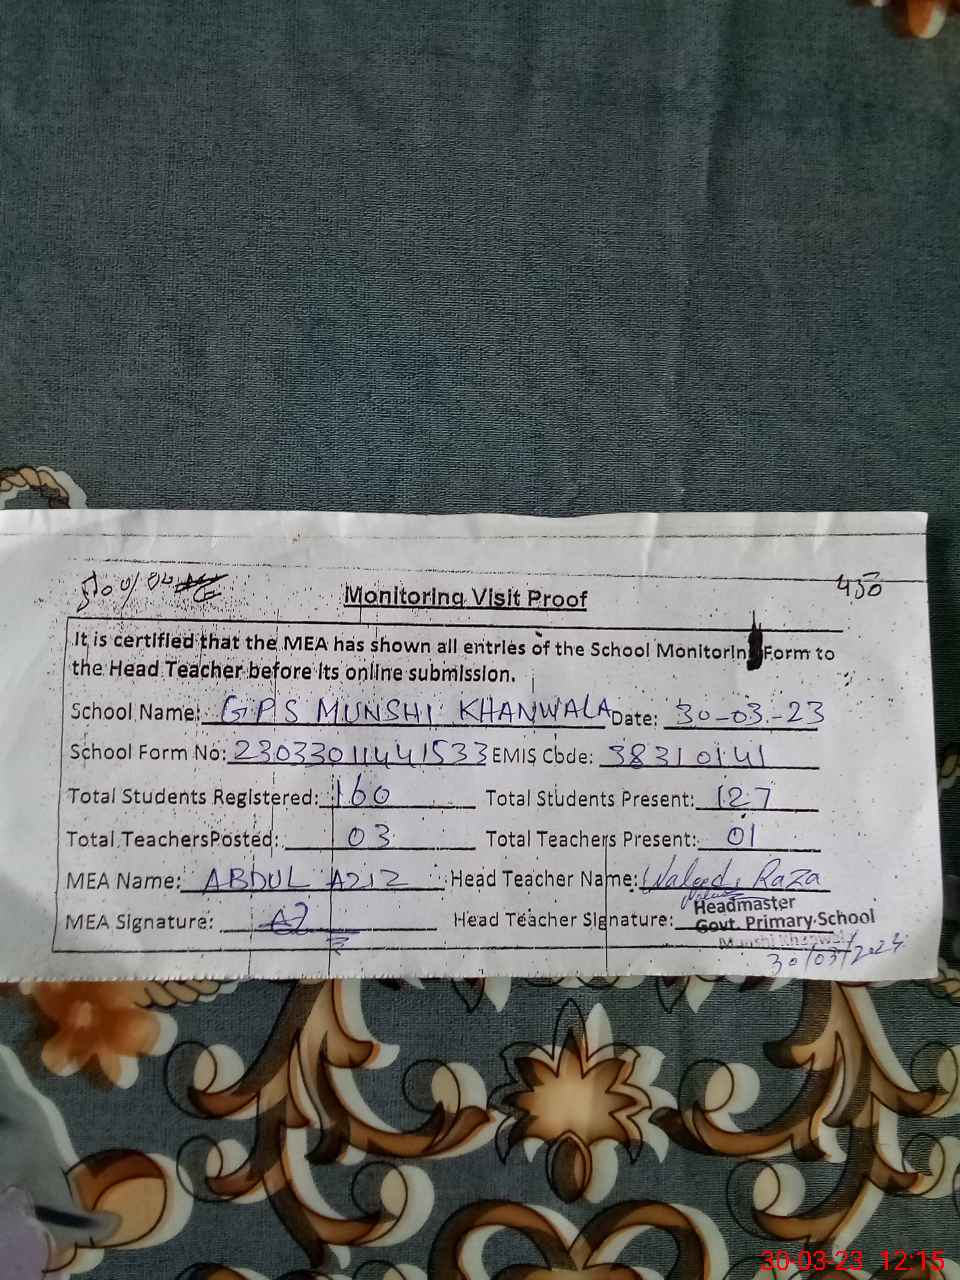 450
Monitoring Visit Proof
It is certified that the MEA has shown all entries of the School Monitoring Form to
the Head Teacher before its online submission.
School Name: GPS MUNSHI KHANWALA Date: 30-03-23
School Form No: 23033011441533 EMIS Code: 38310141
Total Students Registered: 160 Total Students Present: 127
Total Teachers Posted: 03 Total Teachers Present: 01
MEA Name: ABDUL AZIZ Head Teacher Name: Waleed Raza
MEA Signature: AZ Head Teacher Signature:
Headmaster
Govt. Primary School
Munshi Khanwala
30/03/2023
30-03-23 12:15